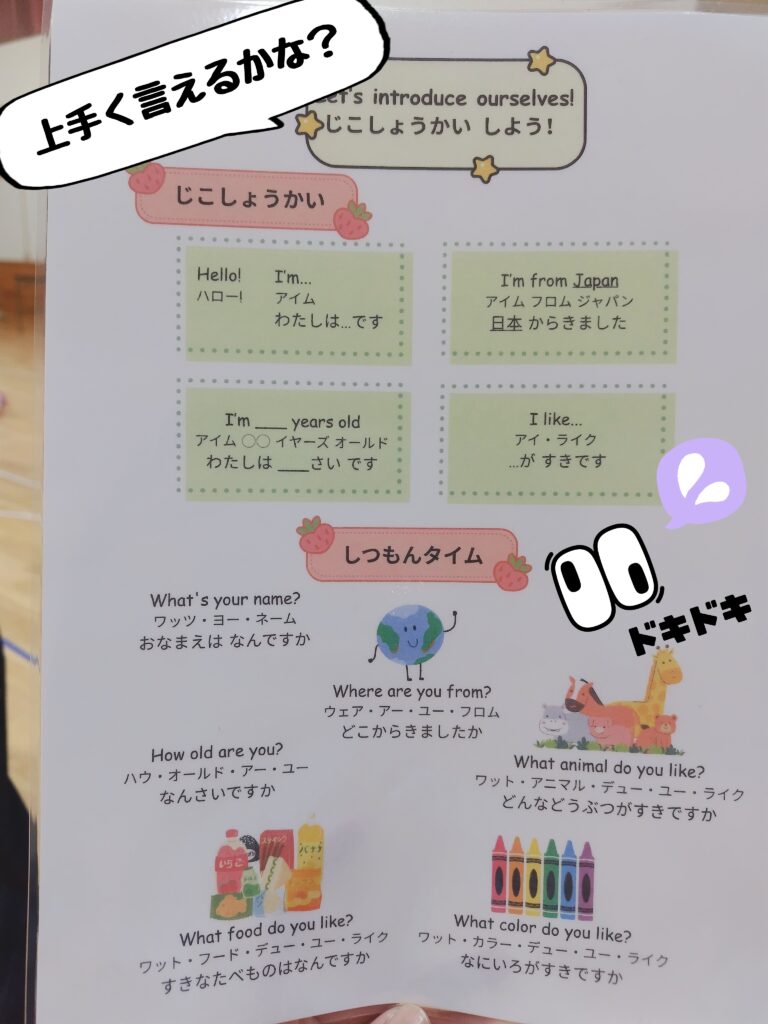 上手く言えるかな?
Let's introduce ourselves!
じこしょうかい しよう!
じこしょうかい
Hello! I'm...
ハロー! アイム
わたしは...です
I'm from Japan
アイム フロム ジャパン
日本 からきました
I'm ___ years old
アイム ○○ イヤーズ オールド
わたしは ___さい です
I like...
アイ・ライク
...が すきです
しつもんタイム
ドキドキ
What's your name?
ワッツ・ヨー・ネーム
おなまえは なんですか
Where are you from?
ウェア・アー・ユー・フロム
どこからきましたか
How old are you?
ハウ・オールド・アー・ユー
なんさいですか
What animal do you like?
ワット・アニマル・デュー・ユー・ライク
どんなどうぶつがすきですか
いちご
バナナ
What food do you like?
ワット・フード・デュー・ユー・ライク
すきなたべものはなんですか
What color do you like?
ワット・カラー・デュー・ユー・ライク
なにいろがすきですか